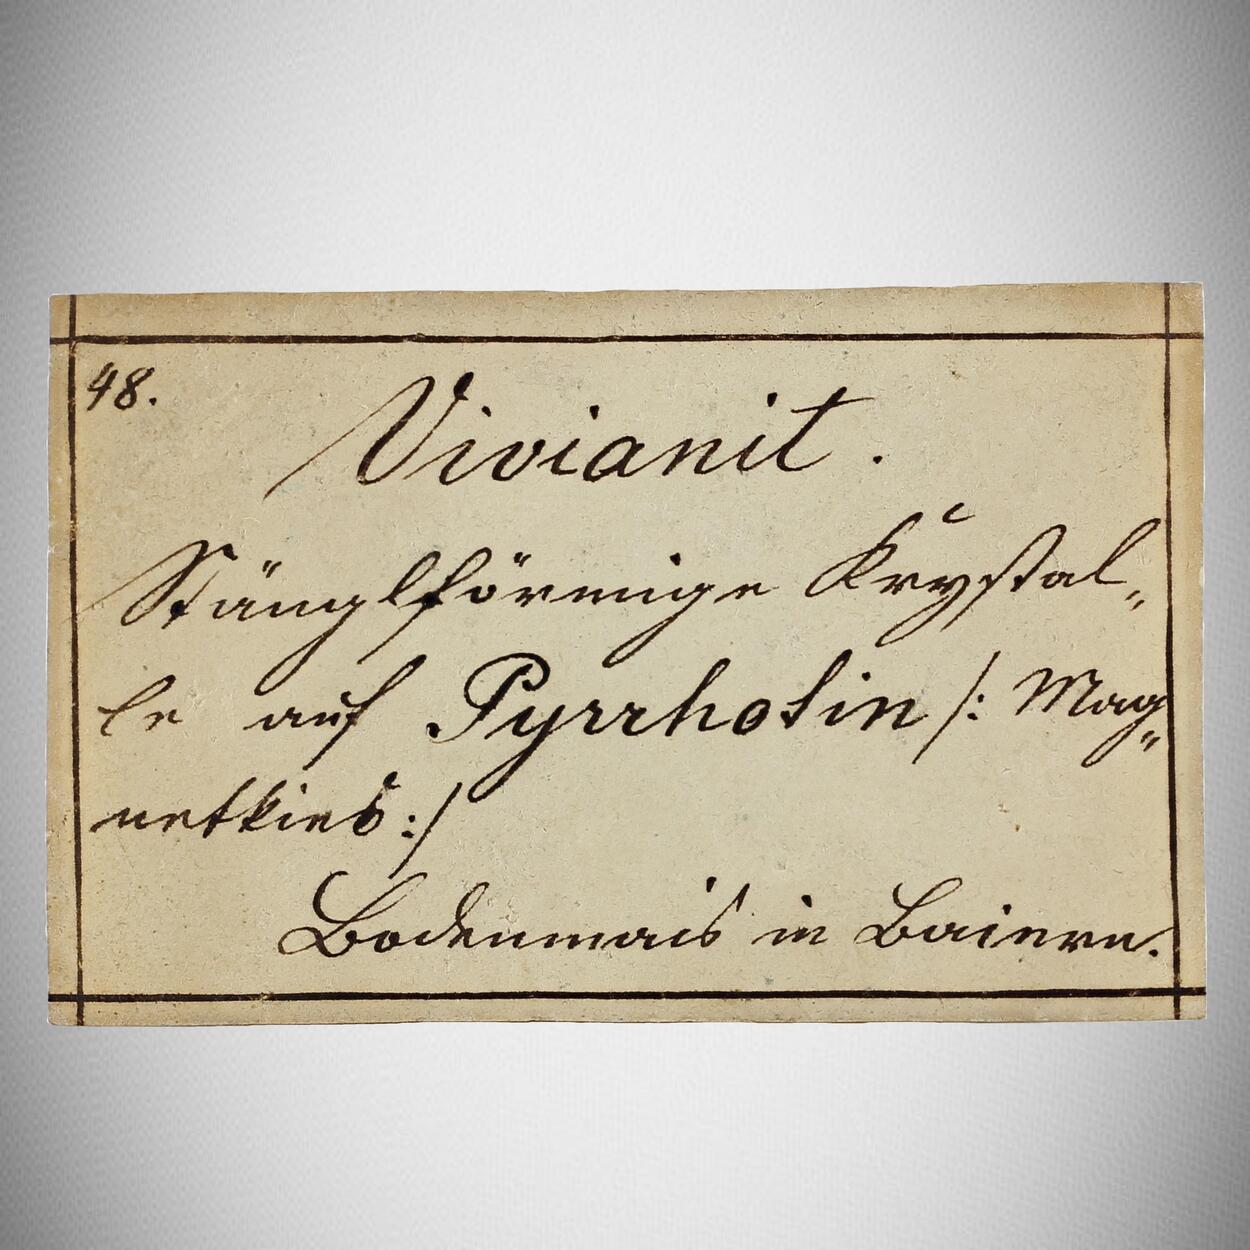 48.
Vivianit.
Stänglförmige Krystal„
le auf Pyrrhotin /: Mag„
netkies :/
Bodenmais in Baiern.